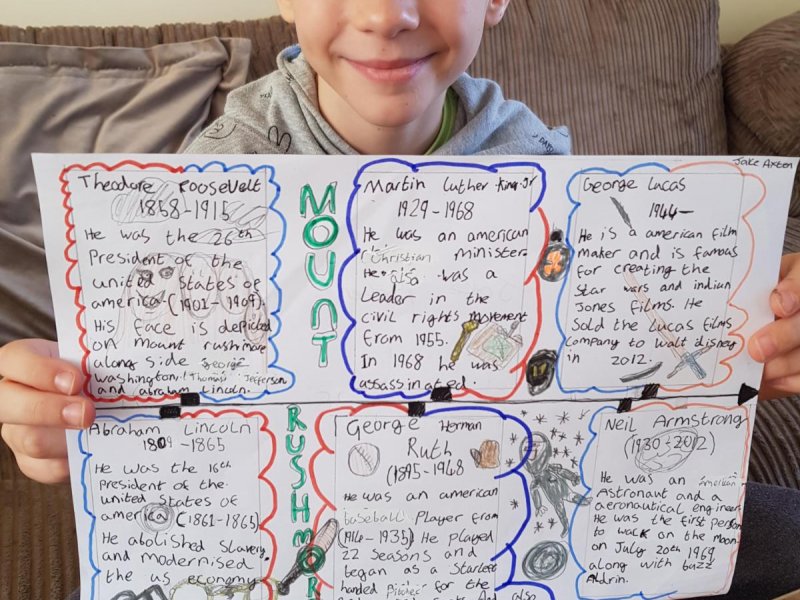 Jake Axten
Theodore Roosevelt
1858-1915
He was the 26th
President of the
united states of
america-(1901-1909).
His face is depicted
on mount rushmore
along side george
washington, Thomas Jefferson
and abraham Lincoln.
MOUNT
Martin Luther King Jr
1929-1968
He was an american
Christian minister
He also was a
Leader in the
civil rights movement
from 1955.
In 1968 he was
assassinated.
George Lucas
1944-
He is a american film
maker and is famous
for creating the
Star wars and indian
Jones films. He
Sold the Lucas films
company to walt disney
in 2012.
Abraham Lincoln
1809-1865
He was the 16th
President of the
united states of
america (1861-1865)
He abolished Slavery,
and modernised
the us economy
RUSHMOR
George Herman
Ruth
(1895-1948
He was an american
baseball Player from
(1914-1935) He played
22 seasons and
began as a Starleft
handed Pitcher for the
And also
Neil Armstrong
(1930-2012)
He was an american
Astronaut and a
aeronautical engineer
He was the first person
to walk on the moon
on July 20th 1969
along with buzz
Aldrin.